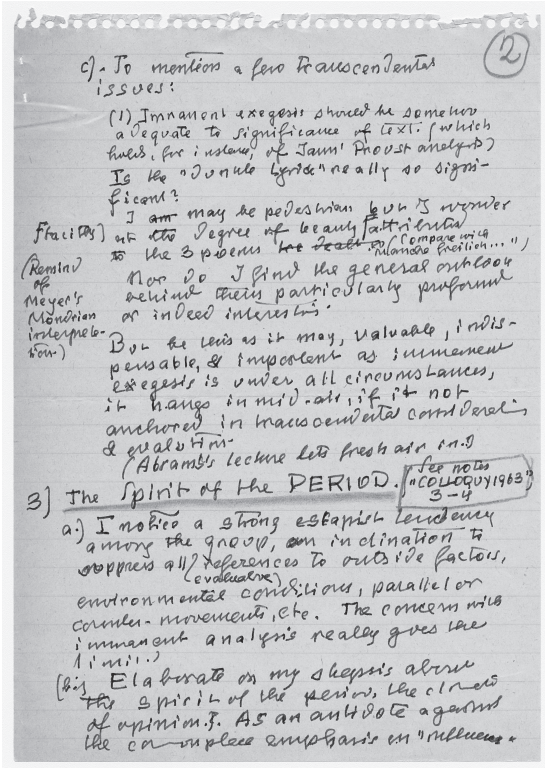 2
c). To mention a few transcendental
issues:
(1) Immanent exegesis should be somehow
adequate to significance of text. (which
holds, for instance, of Jauss' Proust analysis)
Is the "Jungle Lyrics" really so signi-
ficant?
I am may be pedestrian but I wonder
at the degree of beauty attributed
to the 3 poems (Compare with
"Manche freilich...")
Nor do I find the general outlook
behind them particularly profound
or indeed interesting.
(Remind
of
Meyer's
Mondrian
interpreta-
tion.)
But be this as it may, valuable, indis-
pensable, & important as immanent
exegesis is under all circumstances,
it hangs in mid-air, if it not
anchored in transcendental considerations
& evaluation.
(Abrams's lecture lets fresh air in.)
3) The Spirit of the PERIOD. [See notes
"COLLOQUY 1963"
3-4
a.) I notice a strong escapist tendency
among the group, an inclination to
suppress all references to outside factors,
(evaluative)
environmental conditions, parallel or
counter-movements, etc. The concern with
immanent analysis really goes the
limit.)
(b.) Elaborate on my skepsis about
the spirit of the period, the climate
of opinion. As an antidote against
the complete emphasis on "influence"